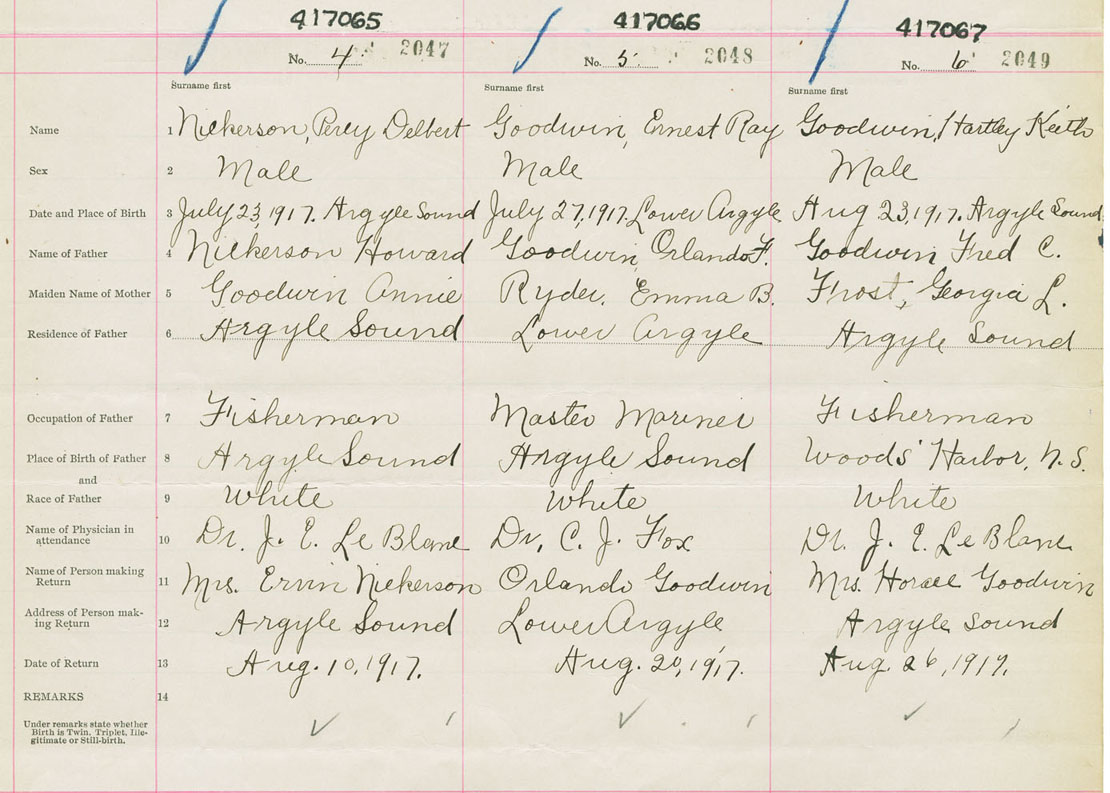 417065 417066 417067
No. 4 2047 No. 5 2048 No. 6 2049
Surname first Surname first Surname first
Name 1 Nickerson, Percy Delbert Goodwin, Ernest Ray Goodwin, Hartley Keith
Sex 2 Male Male Male
Date and Place of Birth 3 July 23, 1917. Argyle Sound July 27, 1917. Lower Argyle Aug 23, 1917. Argyle Sound
Name of Father 4 Nickerson Howard Goodwin, Orlando F. Goodwin Fred C.
Maiden Name of Mother 5 Goodwin Annie Ryder, Emma B. Frost, Georgia L.
Residence of Father 6 Argyle Sound Lower Argyle Argyle Sound
Occupation of Father 7 Fisherman Master Mariner Fisherman
Place of Birth of Father 8 Argyle Sound Argyle Sound Woods' Harbor, N.S.
and
Race of Father 9 White White White
Name of Physician in
attendance 10 Dr. J. E. Le Blanc Dr. C. J. Fox Dr. J. E. Le Blanc
Name of Person making
Return 11 Mrs. Ervin Nickerson Orlando Goodwin Mrs. Horace Goodwin
Address of Person mak-
ing Return 12 Argyle Sound Lower Argyle Argyle Sound
Date of Return 13 Aug. 10, 1917. Aug. 20, 1917. Aug. 26, 1917.
REMARKS 14
Under remarks state whether
Birth is Twin, Triplet, Ille-
gitimate or Still-birth.